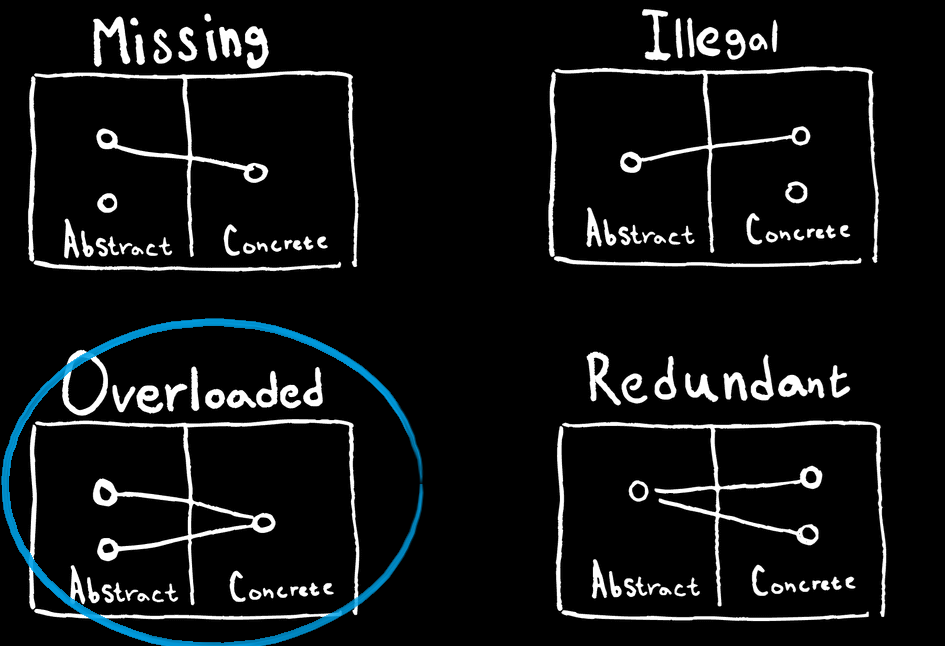 Missing
Abstract
Concrete
Illegal
Abstract
Concrete
Overloaded
Abstract
Concrete
Redundant
Abstract
Concrete